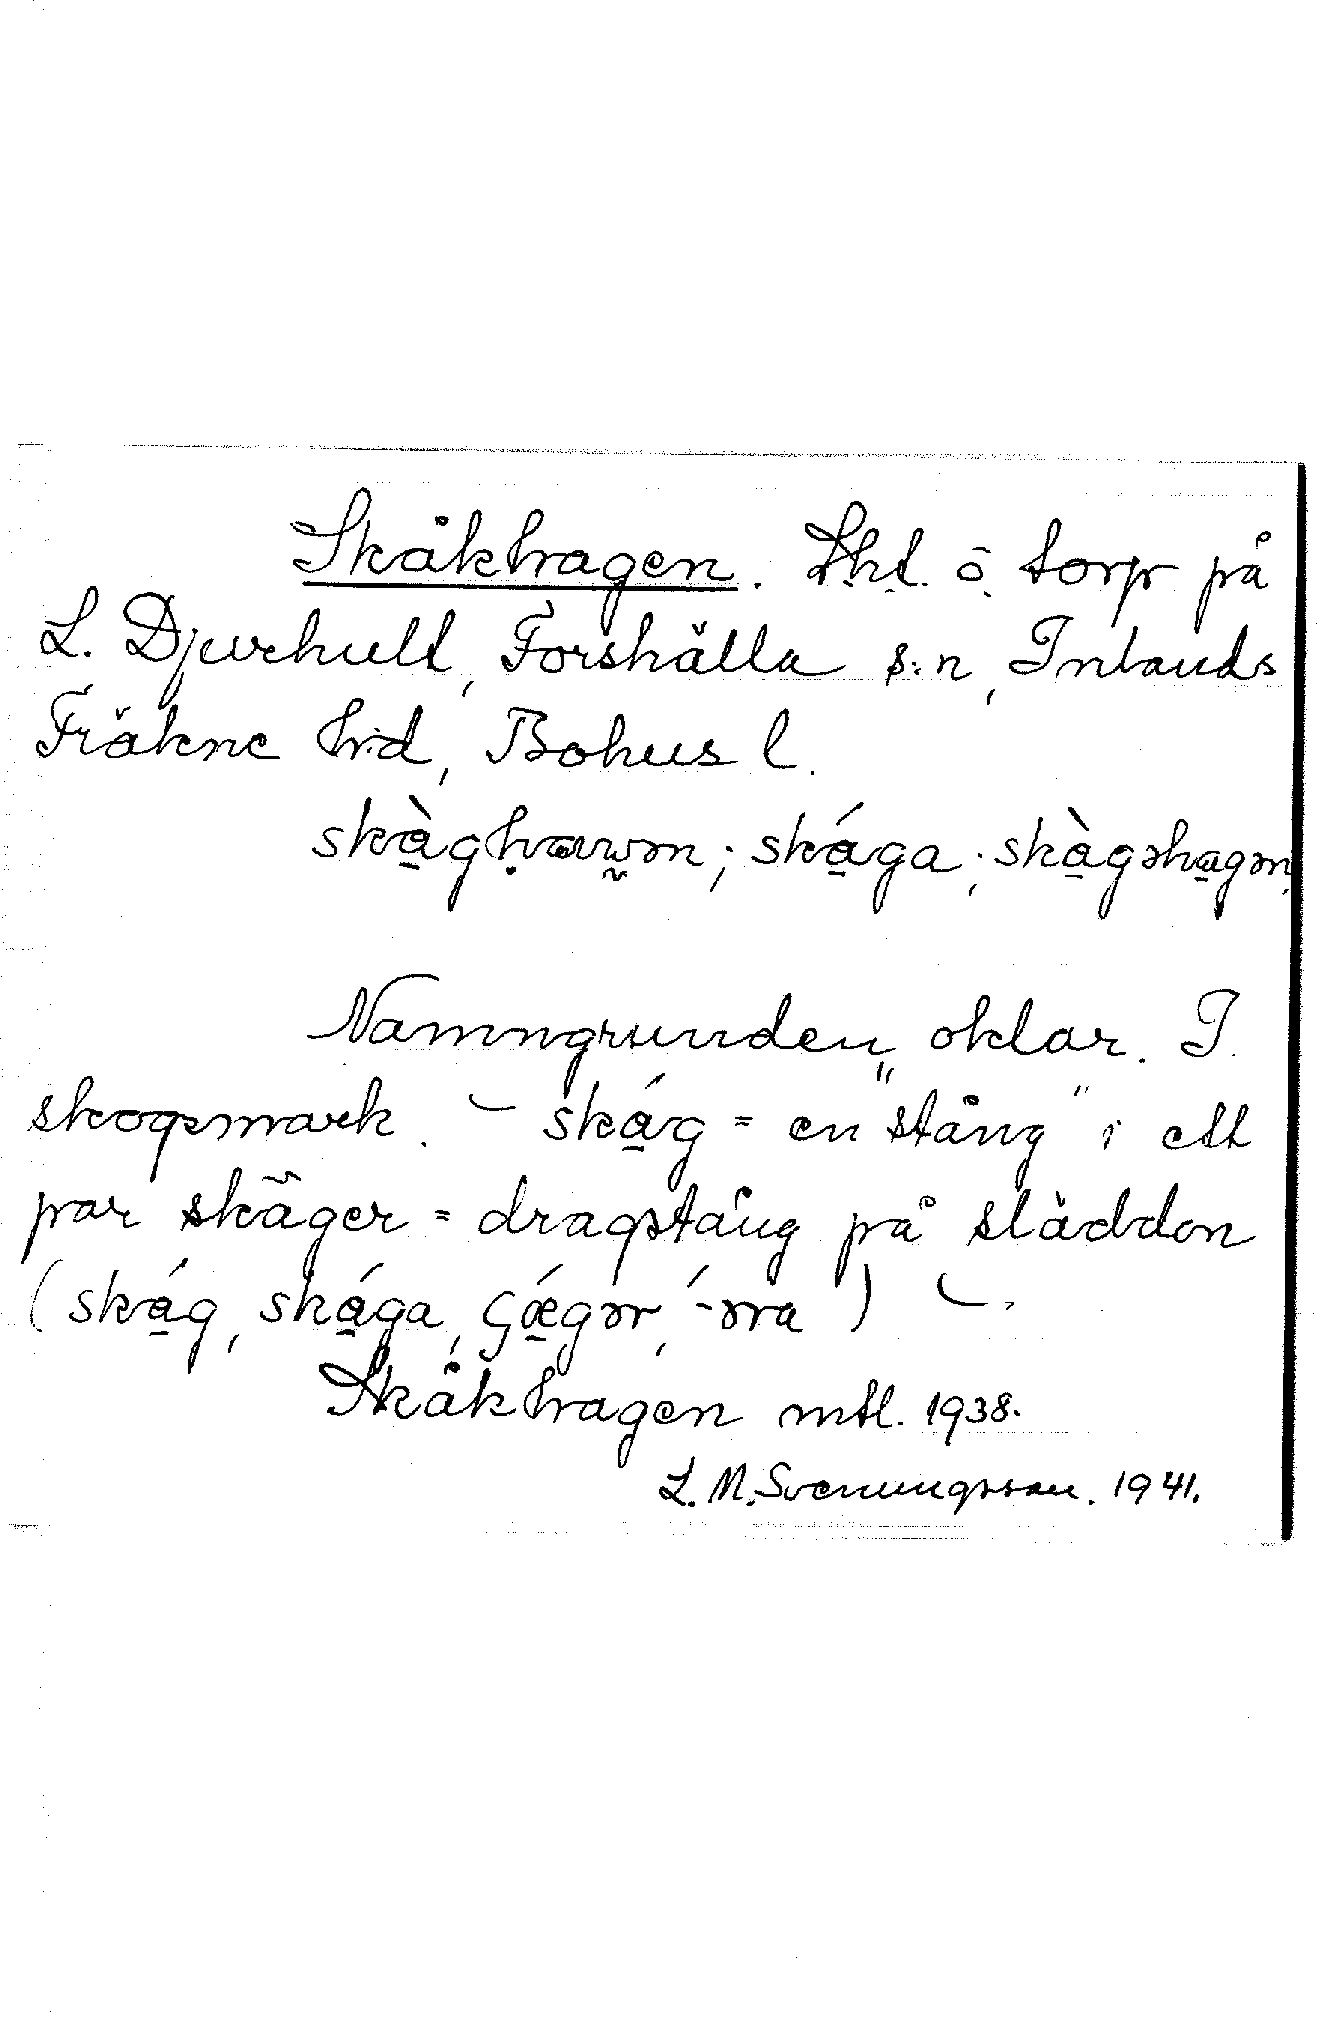 Skåkhagen. Lht. ö. torp på
L. Djurhult, Forshälla s:n, Inlands
Fräkne hd, Bohus l.
skàg̱ha; skág̱a; skàgəhagən
Namngrunden oklar. I
skogsmark. – skág = en "stång" i ett
par skäger = dragstång på släddon
(skág, skága, çǽgər, -́əra) –.
Skåkhagen mtl. 1938.
L. M. Svenungsson. 1941.